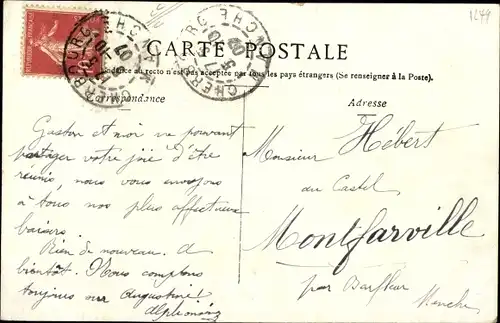 1249
CARTE POSTALE
La Correspondance au recto n'est pas acceptée par tous les pays étrangers (Se renseigner à la Poste).
Correspondance
Adresse
CHERBOURG
MANCHE
CHERBOURG
MANCHE
Gaston et moi ne pouvant
partager votre joie d'être
réunis, nous vous envoyons
à tous nos plus affectueux
baisers.
Rien de nouveau. A
bientôt. Nous comptons
toujours sur Augustine
Monsieur Hébert
au Castel
Montfarville
par Barfleur
Manche